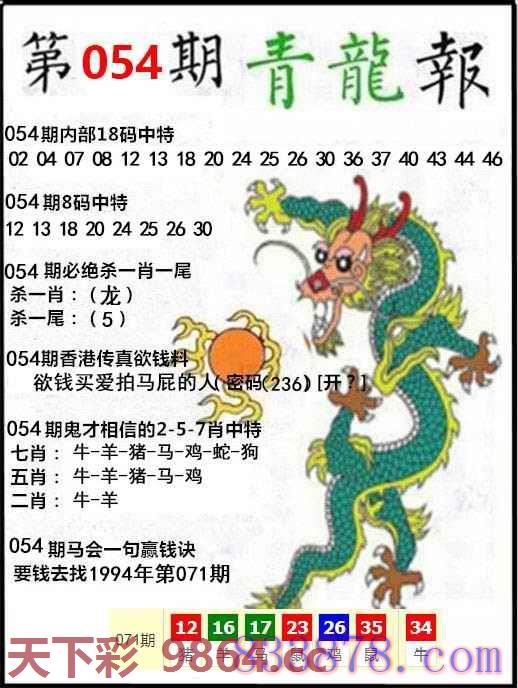 第054期青龍報
054期内部18码中特
02 04 07 08 12 13 18 20 24 25 26 30 36 37 40 43 44 46
054期8码中特
12 13 18 20 24 25 26 30
054期必绝杀一肖一尾
杀一肖：（龙）
杀一尾：（5）
054期香港传真欲钱料
欲钱买爱拍马屁的人(密码(236)[开？]
054期鬼才相信的2-5-7肖中特
七肖：牛-羊-猪-马-鸡-蛇-狗
五肖：牛-羊-猪-马-鸡
二肖：牛-羊
054期马会一句赢钱诀
要钱去找1994年第071期
071期 12 16 17 23 26 35 34
猪 羊 马 鼠 鸡 鼠 牛
天下彩 9864.cc